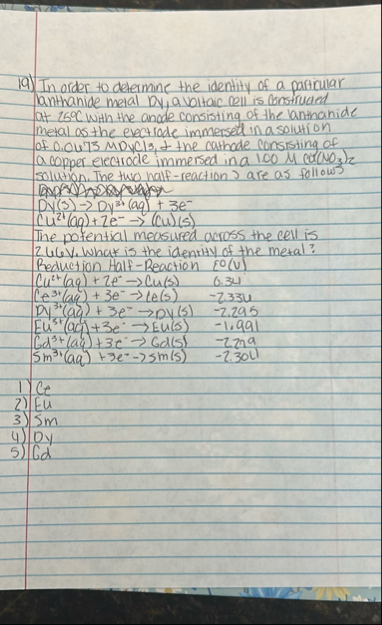 19) In order to determine the identity of a particular
lanthanide metal Dy, a voltaic cell is constructed
at 25°C with the anode consisting of the lanthanide
metal as the electrode immersed in a solution
of 0.0473 M DyCl3, & the cathode consisting of
a copper electrode immersed in a 1.00 M Cu(NO3)2
solution. The two half-reactions are as follows
Dy(s) → Dy3+(aq) + 3e-
Cu2+(aq) + 2e- → (Cu)(s)
The potential measured across the cell is
2.66V. What is the identity of the metal?
Reduction Half-Reaction E°(V)
Cu2+(aq) + 2e- → Cu(s) 0.34
Ce3+(aq) + 3e- → Ce(s) -2.336
Dy3+(aq) + 3e- → Dy(s) -2.295
Eu3+(aq) + 3e- → Eu(s) -1.991
Gd3+(aq) + 3e- → Gd(s) -2.279
Sm3+(aq) + 3e- → Sm(s) -2.304
1) Ce
2) Eu
3) Sm
4) Dy
5) Gd